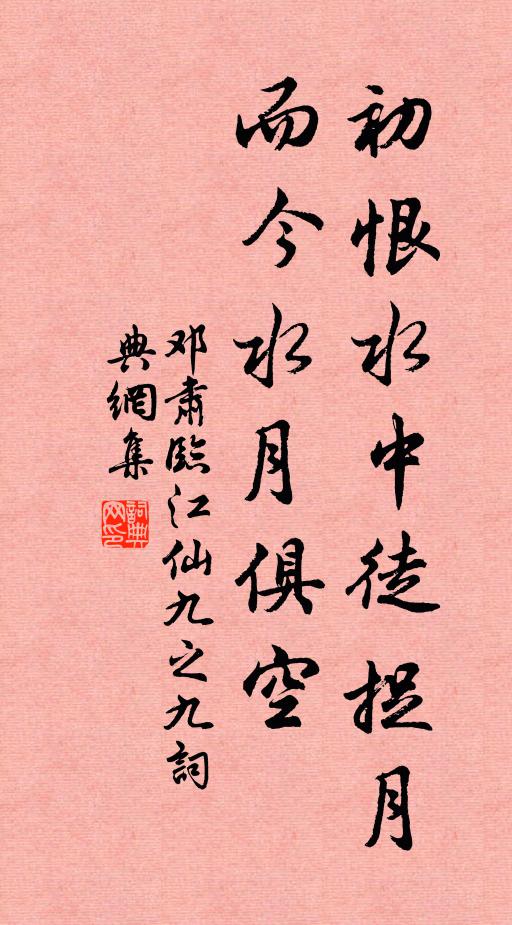 初恨水中徒捉月
而今水月俱空
邓肃臨江仙九之九詞
典網集
詞典
网印